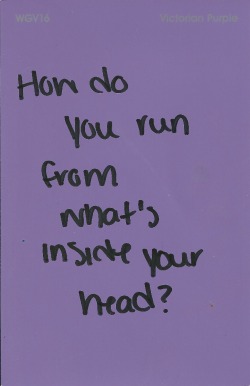 WGV16 Victorian Purple
How do
you run
from
what's
inside your
head?